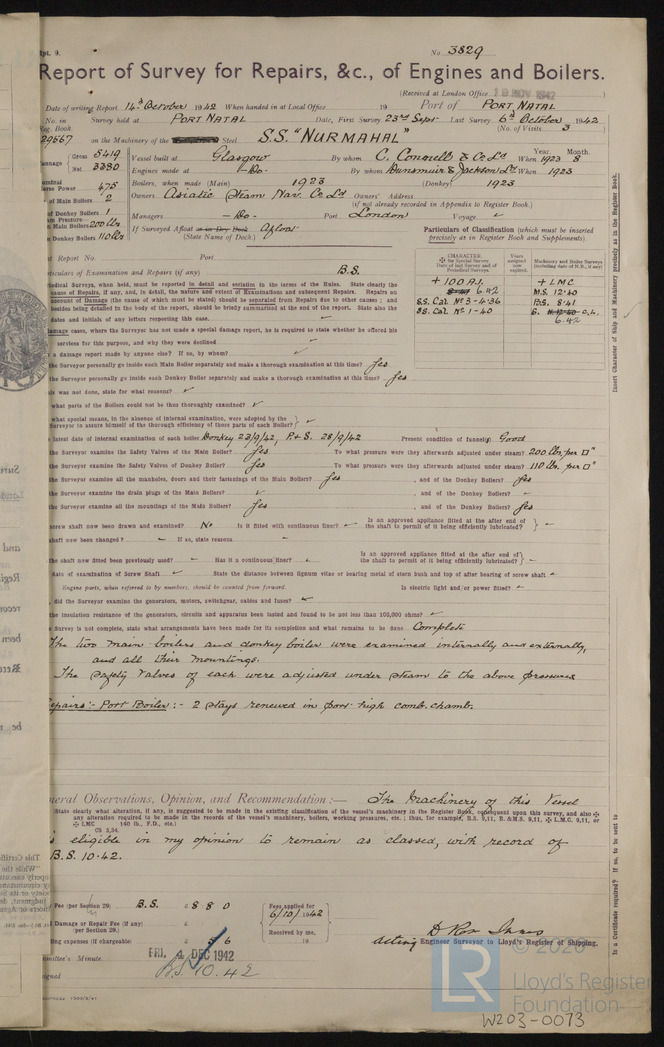 Rpt. 9.
No. 3829
Report of Survey for Repairs, &c., of Engines and Boilers.
(Received at London Office 18 NOV 1942
Date of writing Report 14th October 1942 When handed in at Local Office 19 Port of PORT NATAL
No. in Survey held at PORT NATAL Date, First Survey 23rd Sept Last Survey 6th October 1942
Reg. Book. (No. of Visits 3
29667 on the Machinery of the Steel S.S. "NURMAHAL"
Gross 5419
Tonnage
Net 3380
Vessel built at Glasgow By whom C. Connell & Co Ld When 1923 Year. Month. 8
Engines made at -Do- By whom Dunsmuir & Jackson Ld When 1923
Nominal Horse Power 475
Boilers, when made (Main) 1923 (Donkey) 1923
of Main Boilers 2
Owners Asiatic Steam Nav. Co Ld Owners' Address
(if not already recorded in Appendix to Register Book.)
of Donkey Boilers 1
Managers -Do- Port London Voyage
Main Boilers 200 lbs
Donkey Boilers 110 lbs
If Surveyed Afloat or in Dry Dock Afloat
(State Name of Dock.)
Particulars of Classification (which must be inserted
precisely as in Register Book and Supplements).
CHARACTER.
✠ for Special Survey
Date of last Survey and of
Periodical Surveys.
Years
assigned
now
expired.
Machinery and Boiler Surveys
(including date of N.B., if any)
+ 100 A.1. + L M C.
6.42 M.S. 12.40
SS. Cal. No 3-4.36 B.S. 8.41
SS. Cal. No 1-40 S. C.L.
6.42
st Report No. Port
Particulars of Examination and Repairs (if any) B.S.
Periodical Surveys, when held, must be reported in detail and seriatim in the terms of the Rules. State clearly the
cause of Repairs, if any, and, in detail, the nature and extent of Examinations and subsequent Repairs. Repairs on
account of Damage (the cause of which must be stated) should be separated from Repairs due to other causes; and
besides being detailed in the body of the report, should be briefly summarised at the end of report. State also the
dates and initials of any letters respecting this case.
Damage cases, where the Surveyor has not made a special damage report, he is required to state whether he offered his
services for this purpose, and why they were declined
a damage report made by anyone else? If so, by whom?
the Surveyor personally go inside each Main Boiler separately and make a thorough examination at this time? Yes
the Surveyor personally go inside each Donkey Boiler separately and make a thorough examination at this time? Yes
this was not done, state for what reasons?
what parts of the Boilers could not be thus thoroughly examined?
what special means, in the absence of internal examination, were adopted by the
Surveyor to assure himself of the thorough efficiency of those parts of each Boiler?
latest date of internal examination of each boiler Donkey 23/9/42, P.+S. 28/9/42 Present condition of funnel(s) Good
the Surveyor examine the Safety Valves of the Main Boiler? Yes To what pressure were they afterwards adjusted under steam? 200 lbs. per □"
the Surveyor examine the Safety Valves of Donkey Boiler? Yes To what pressure were they afterwards adjusted under steam? 110 lbs. per □"
the Surveyor examine all the manholes, doors and their fastenings of the Main Boilers? Yes , and of the Donkey Boiler? Yes
the Surveyor examine the drain plugs of the Main Boilers? , and of the Donkey Boiler?
the Surveyor examine all the mountings of the Main Boilers? Yes , and of the Donkey Boiler? Yes
screw shaft now been drawn and examined? No Is it fitted with continuous liner?
Is an approved appliance fitted at the after end of
the shaft to permit of it being efficiently lubricated?
shaft now been changed? If so, state reasons
the shaft now fitted been previously used? Has it a continuous liner?
Is an approved appliance fitted at the after end of
the shaft to permit of it being efficiently lubricated?
date of examination of Screw Shaft State the distance between lignum vitæ or bearing metal of stern bush and top of after bearing of screw shaft
Engine parts, when referred to by numbers, should be counted from forward. Is electric light and/or power fitted?
did the Surveyor examine the generators, motors, switchgear, cables and fuses?
the insulation resistance of the generators, circuits and apparatus been tested and found to be not less than 100,000 ohms?
Survey is not complete, state what arrangements have been made for its completion and what remains to be done Complete
The two main boilers and donkey boiler were examined internally and externally,
and all their mountings.
The safety valves of each were adjusted under steam to the above pressures
Repairs:- Port Boiler:- 2 stays renewed in port high comb. chamb.
General Observations, Opinion, and Recommendation:— The Machinery of this Vessel
(State clearly what alteration, if any, is suggested to be made in the existing classification of the vessel's machinery in the Register Book, consequent upon this survey, and also
any alteration required to be made in the records of the vessel's machinery, boilers, working pressures, etc.; thus, for example, B.S. 9,11, B.&M.S. 9,11, ✠ L.M.C. 9,11, or
✠ LMC 140 lb., F.D., etc.)
CS 3,34.
is eligible in my opinion to remain as classed, with record of
B.S. 10.42.
Fee (per Section 29) B.S. £ 8 8 0
Fees applied for
6/10/1942
Damage or Repair Fee (if any) £
(per Section 29.)
Received by me,
19
lling expenses (if chargeable) £ 5 6
Committee's Minute FRI. 4 DEC 1942
Assigned B.S. 10.42
acting Engineer Surveyor to Lloyd's Register of Shipping.
Insert Character of Ship and Machinery precisely as in the Register Book.
Is a Certificate required? If so, to be sent to
© 2020
LR
Lloyd's Register
Foundation
W203-0073